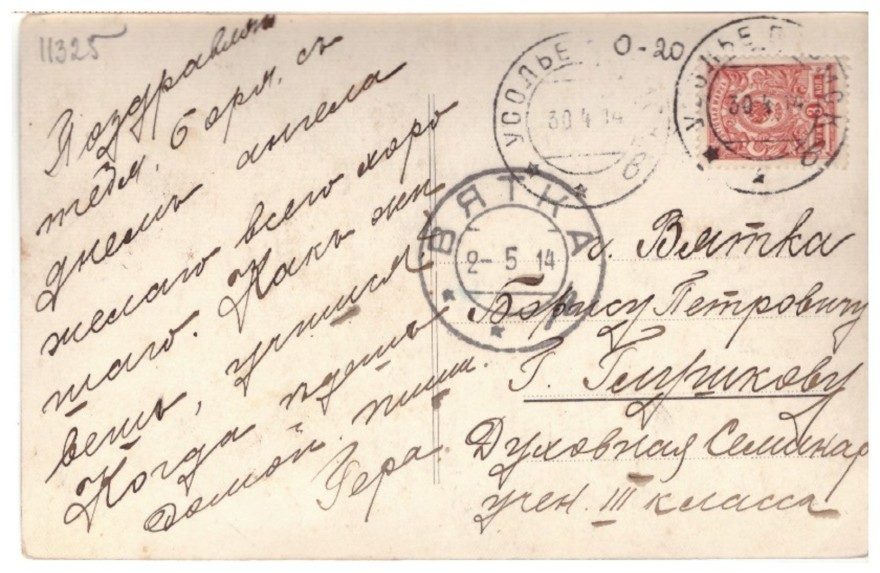 11325
0-20
Поздравляю
тебя, Боря, съ
днемъ ангела
желаю всего хоро
шаго. Какъ жи
вешь, учишься
Когда ѣдешь
домой. пиши.
Гера
УСОЛЬЕ
30 4 14
в
УСОЛЬЕ
30 4 14
в
ВЯТКА
2-5 14
г. Вятка
Борису Петровичу
Г.
Духовная Семинар
учен. III класса